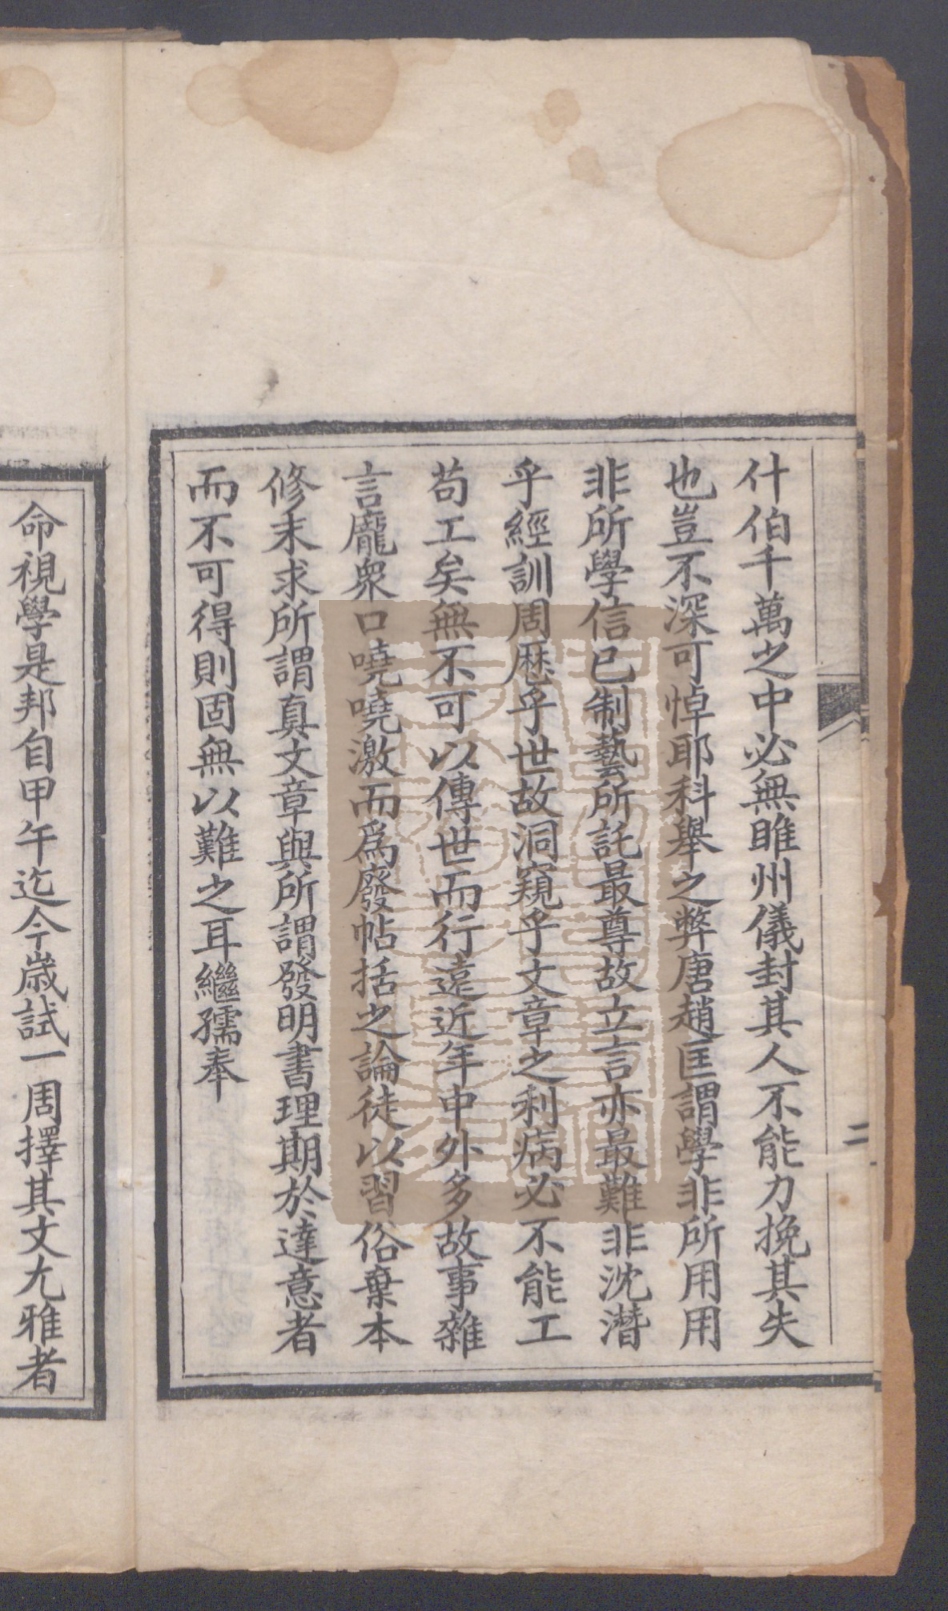 什伯千萬之中必無睢州儀封其人不能力挽其失
也豈不深可悼耶科舉之弊唐趙匡謂學非所用用
非所學信已制藝所託最尊故立言亦最難非沈潛
乎經訓周歷乎世故洞窺乎文章之利病必不能工
苟工矣無不可以傳世而行遠近年中外多故事雜
言龐衆口嘵嘵激而爲廢帖括之論徒以習俗棄本
修末求所謂真文章與所謂發明書理期於達意者
而不可得則固無以難之耳繼孺奉
二
命視學是邦自甲午迄今歲試一周擇其文尤雅者